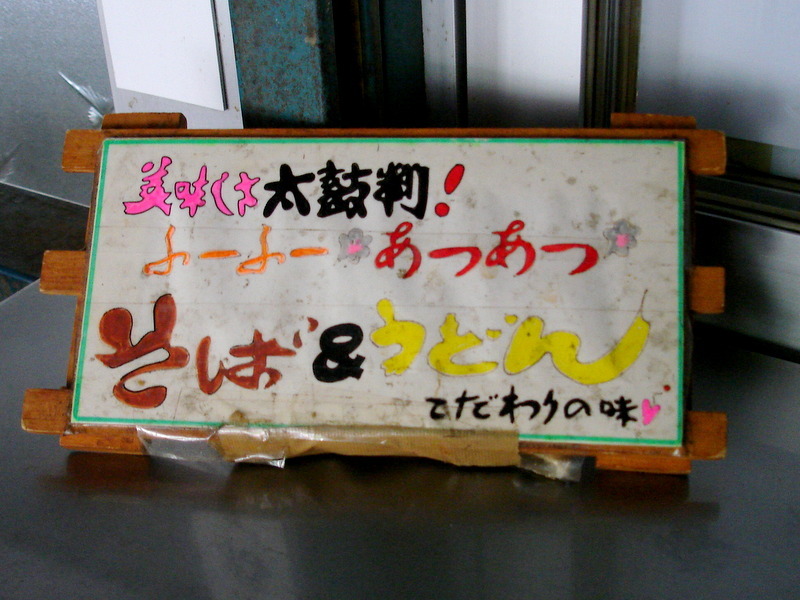 美味しさ太鼓判!
ふーふー あつあつ
そば&うどん
こだわりの味